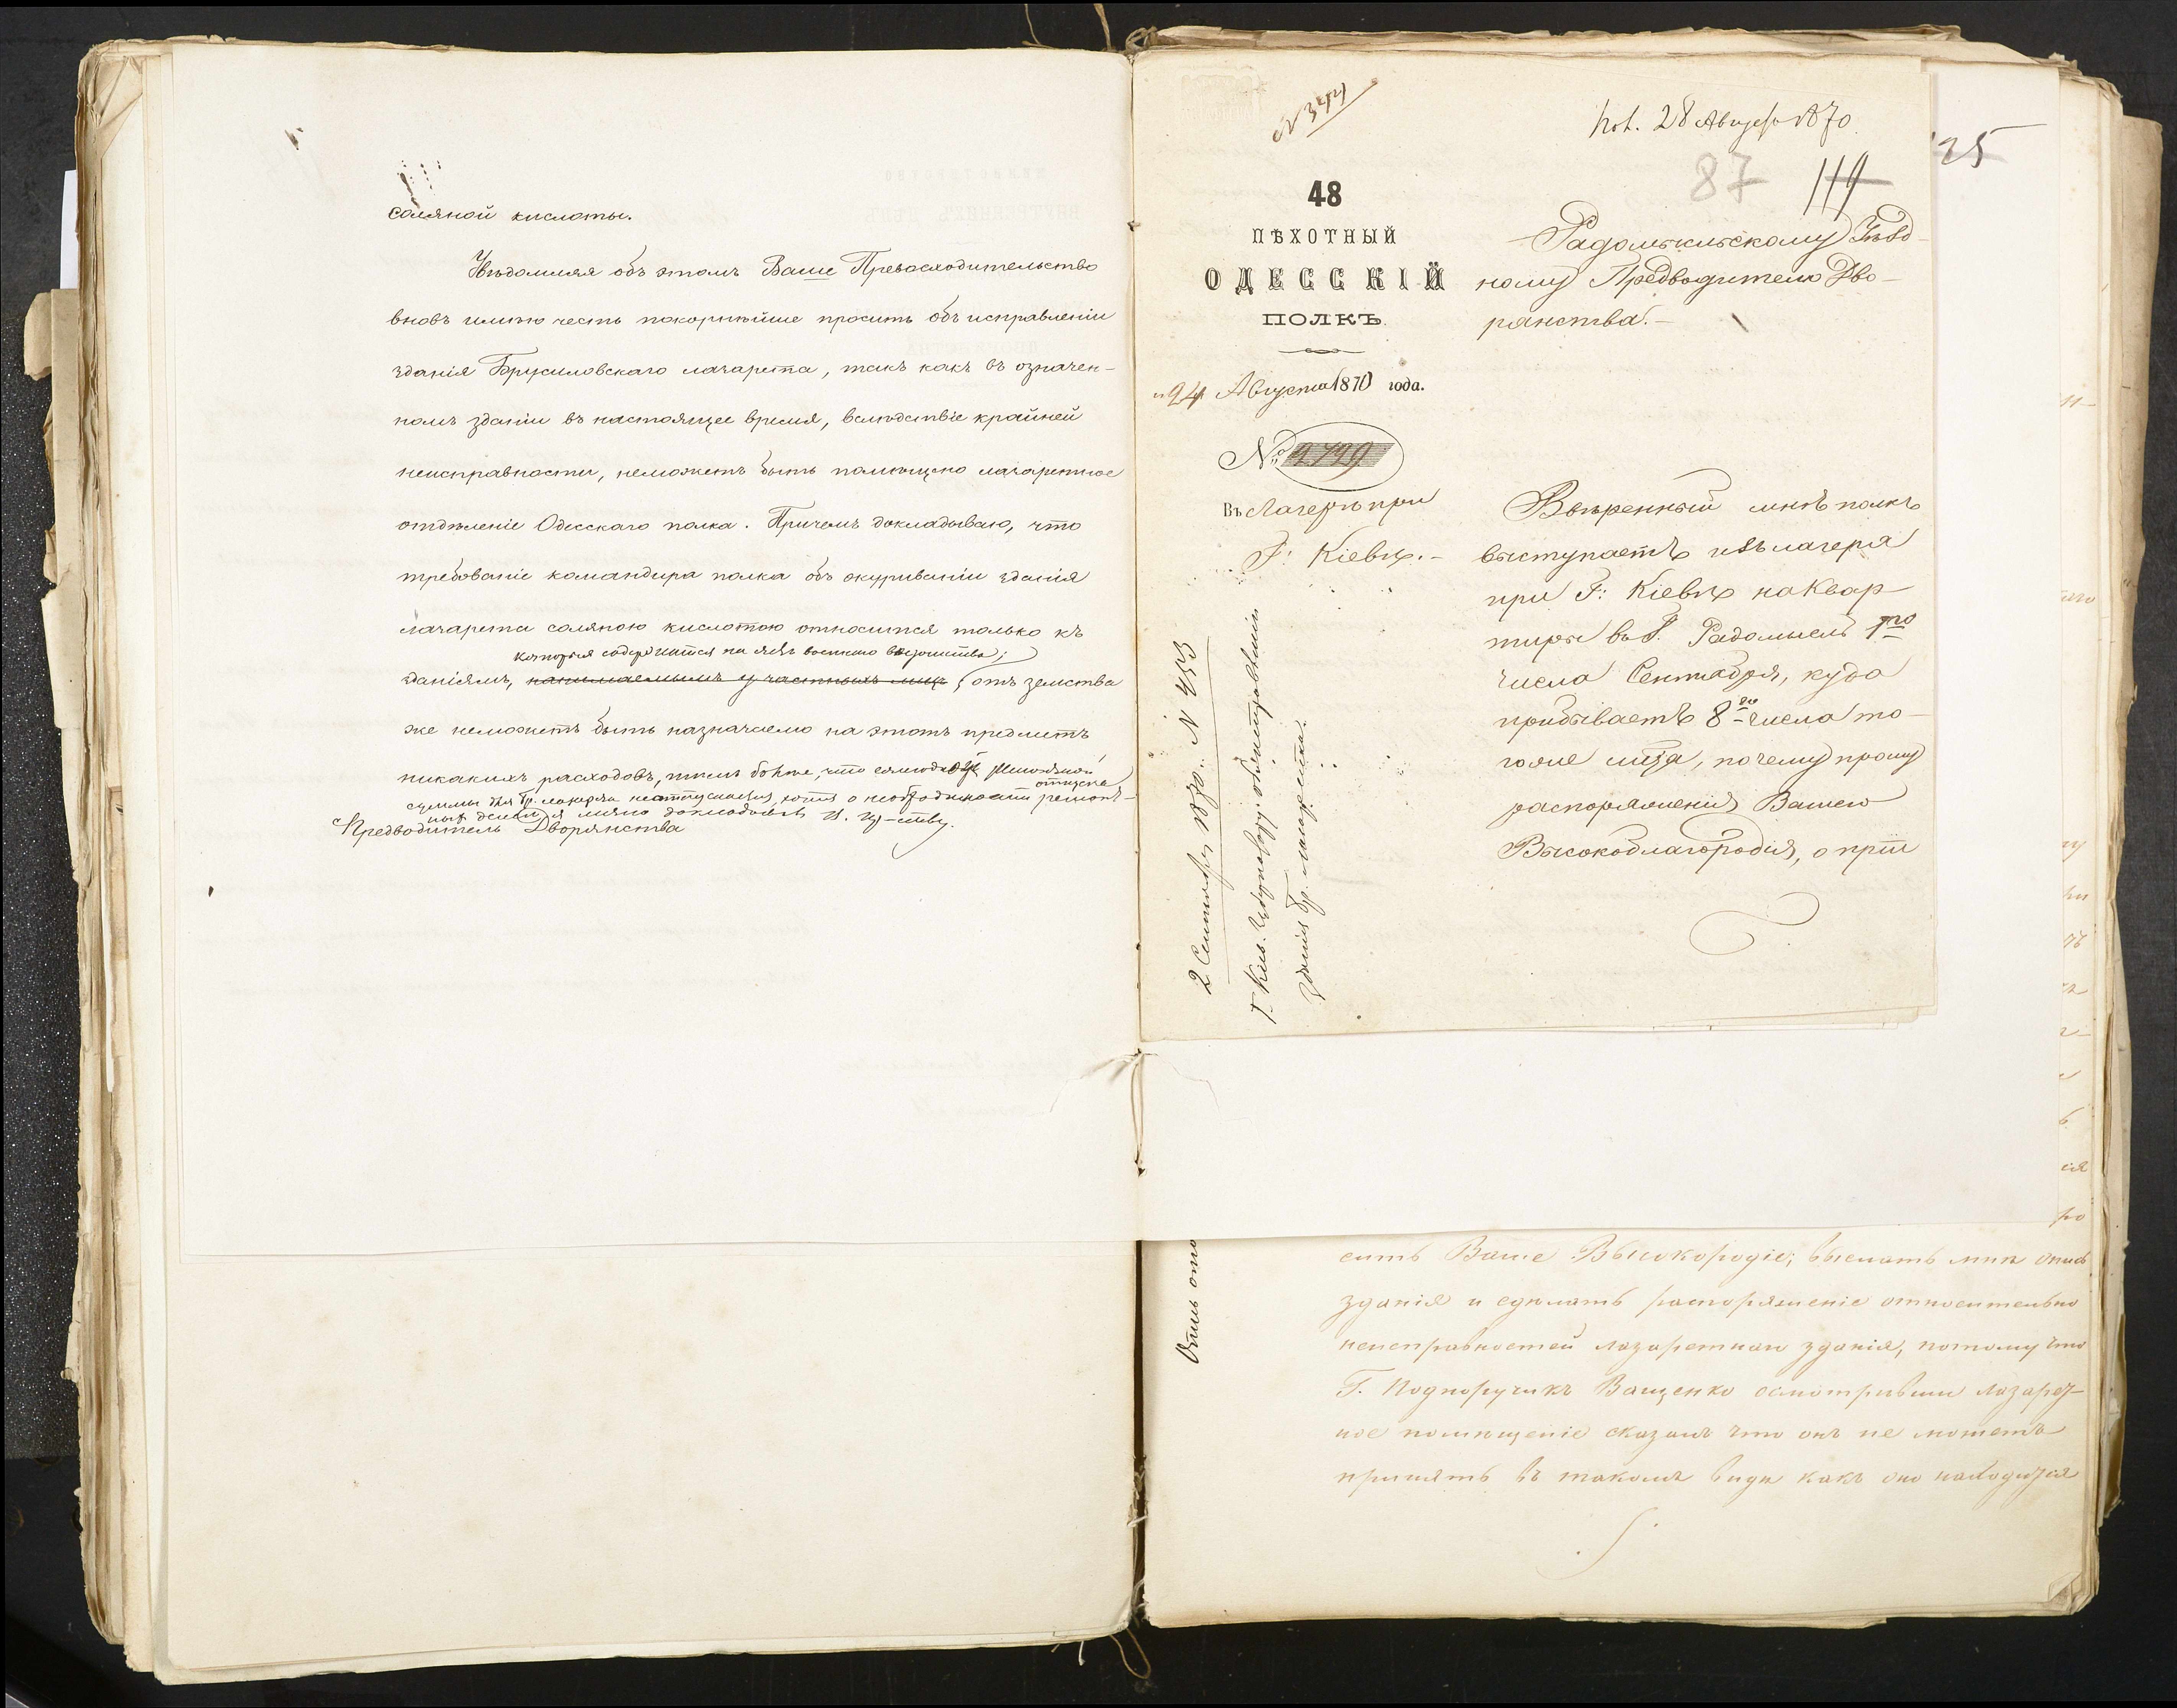 соляной кислоты.
Увѣдомляя объ этомъ Ваше Превосходительство
вновь имѣю честь покорнѣйше просить объ исправленіи
зданія Брусиловскаго лазарета, такъ какъ въ означен-
номъ зданіи въ настоящее время, вслѣдствіе крайней
неисправности, неможетъ быть помѣщено лазаретное
отдѣленіе Одесскаго полка. Причемъ докладываю, что
требованіе командира полка объ окуриваніи зданія
лазарета соляною кислотою относится только къ
которыя содержатся на счетъ военнаго вѣдомства;
зданіямъ, нанимаемымъ у частныхъ лицъ, отъ земства
же неможетъ быть назначаемо на этотъ предметъ
никакихъ расходовъ, тѣмъ болѣе, что
отпуска
суммы для Бр. лазарета неотпускается, хотя о необходимости ремонт-
ныхъ я лично докладывалъ В. Пр-ству.
Предводитель Дворянства
№ 344
28 Августа 1870
87
119
125
48
ПѢХОТНЫЙ
ОДЕССКІЙ
ПОЛКЪ
„24 Августа 1870 года.
№ 2729
Въ Лагерѣ при
Г: Кіевѣ.-
Радомысльскому Уѣзд-
ному Предводителю Дво-
рянства.-
Ввѣренный мнѣ полкъ
выступаетъ изъ лагеря
при Г: Кіевѣ на Квар-
тиры въ Г. Радомысль 1го
числа Сентября, куда
прибываетъ 8го числа то-
гоже м-ца, почему прошу
распоряженія Вашего
Высокоблагородія, о прі
2 Сентября 1870. N 453
Г. Кіев. Губернатору
зданія Бр. лазарета.
сить Ваше Высокородіе; выслать мнѣ опись
зданія и сдѣлать распоряженіе относительно
неисправностей лазаретнаго зданія, потому что
Г. Подпоручикъ Ващенко осмотрѣвши лазарет-
ное помѣщеніе сказалъ что онъ не можетъ
принять въ такомъ видѣ какъ оно находится